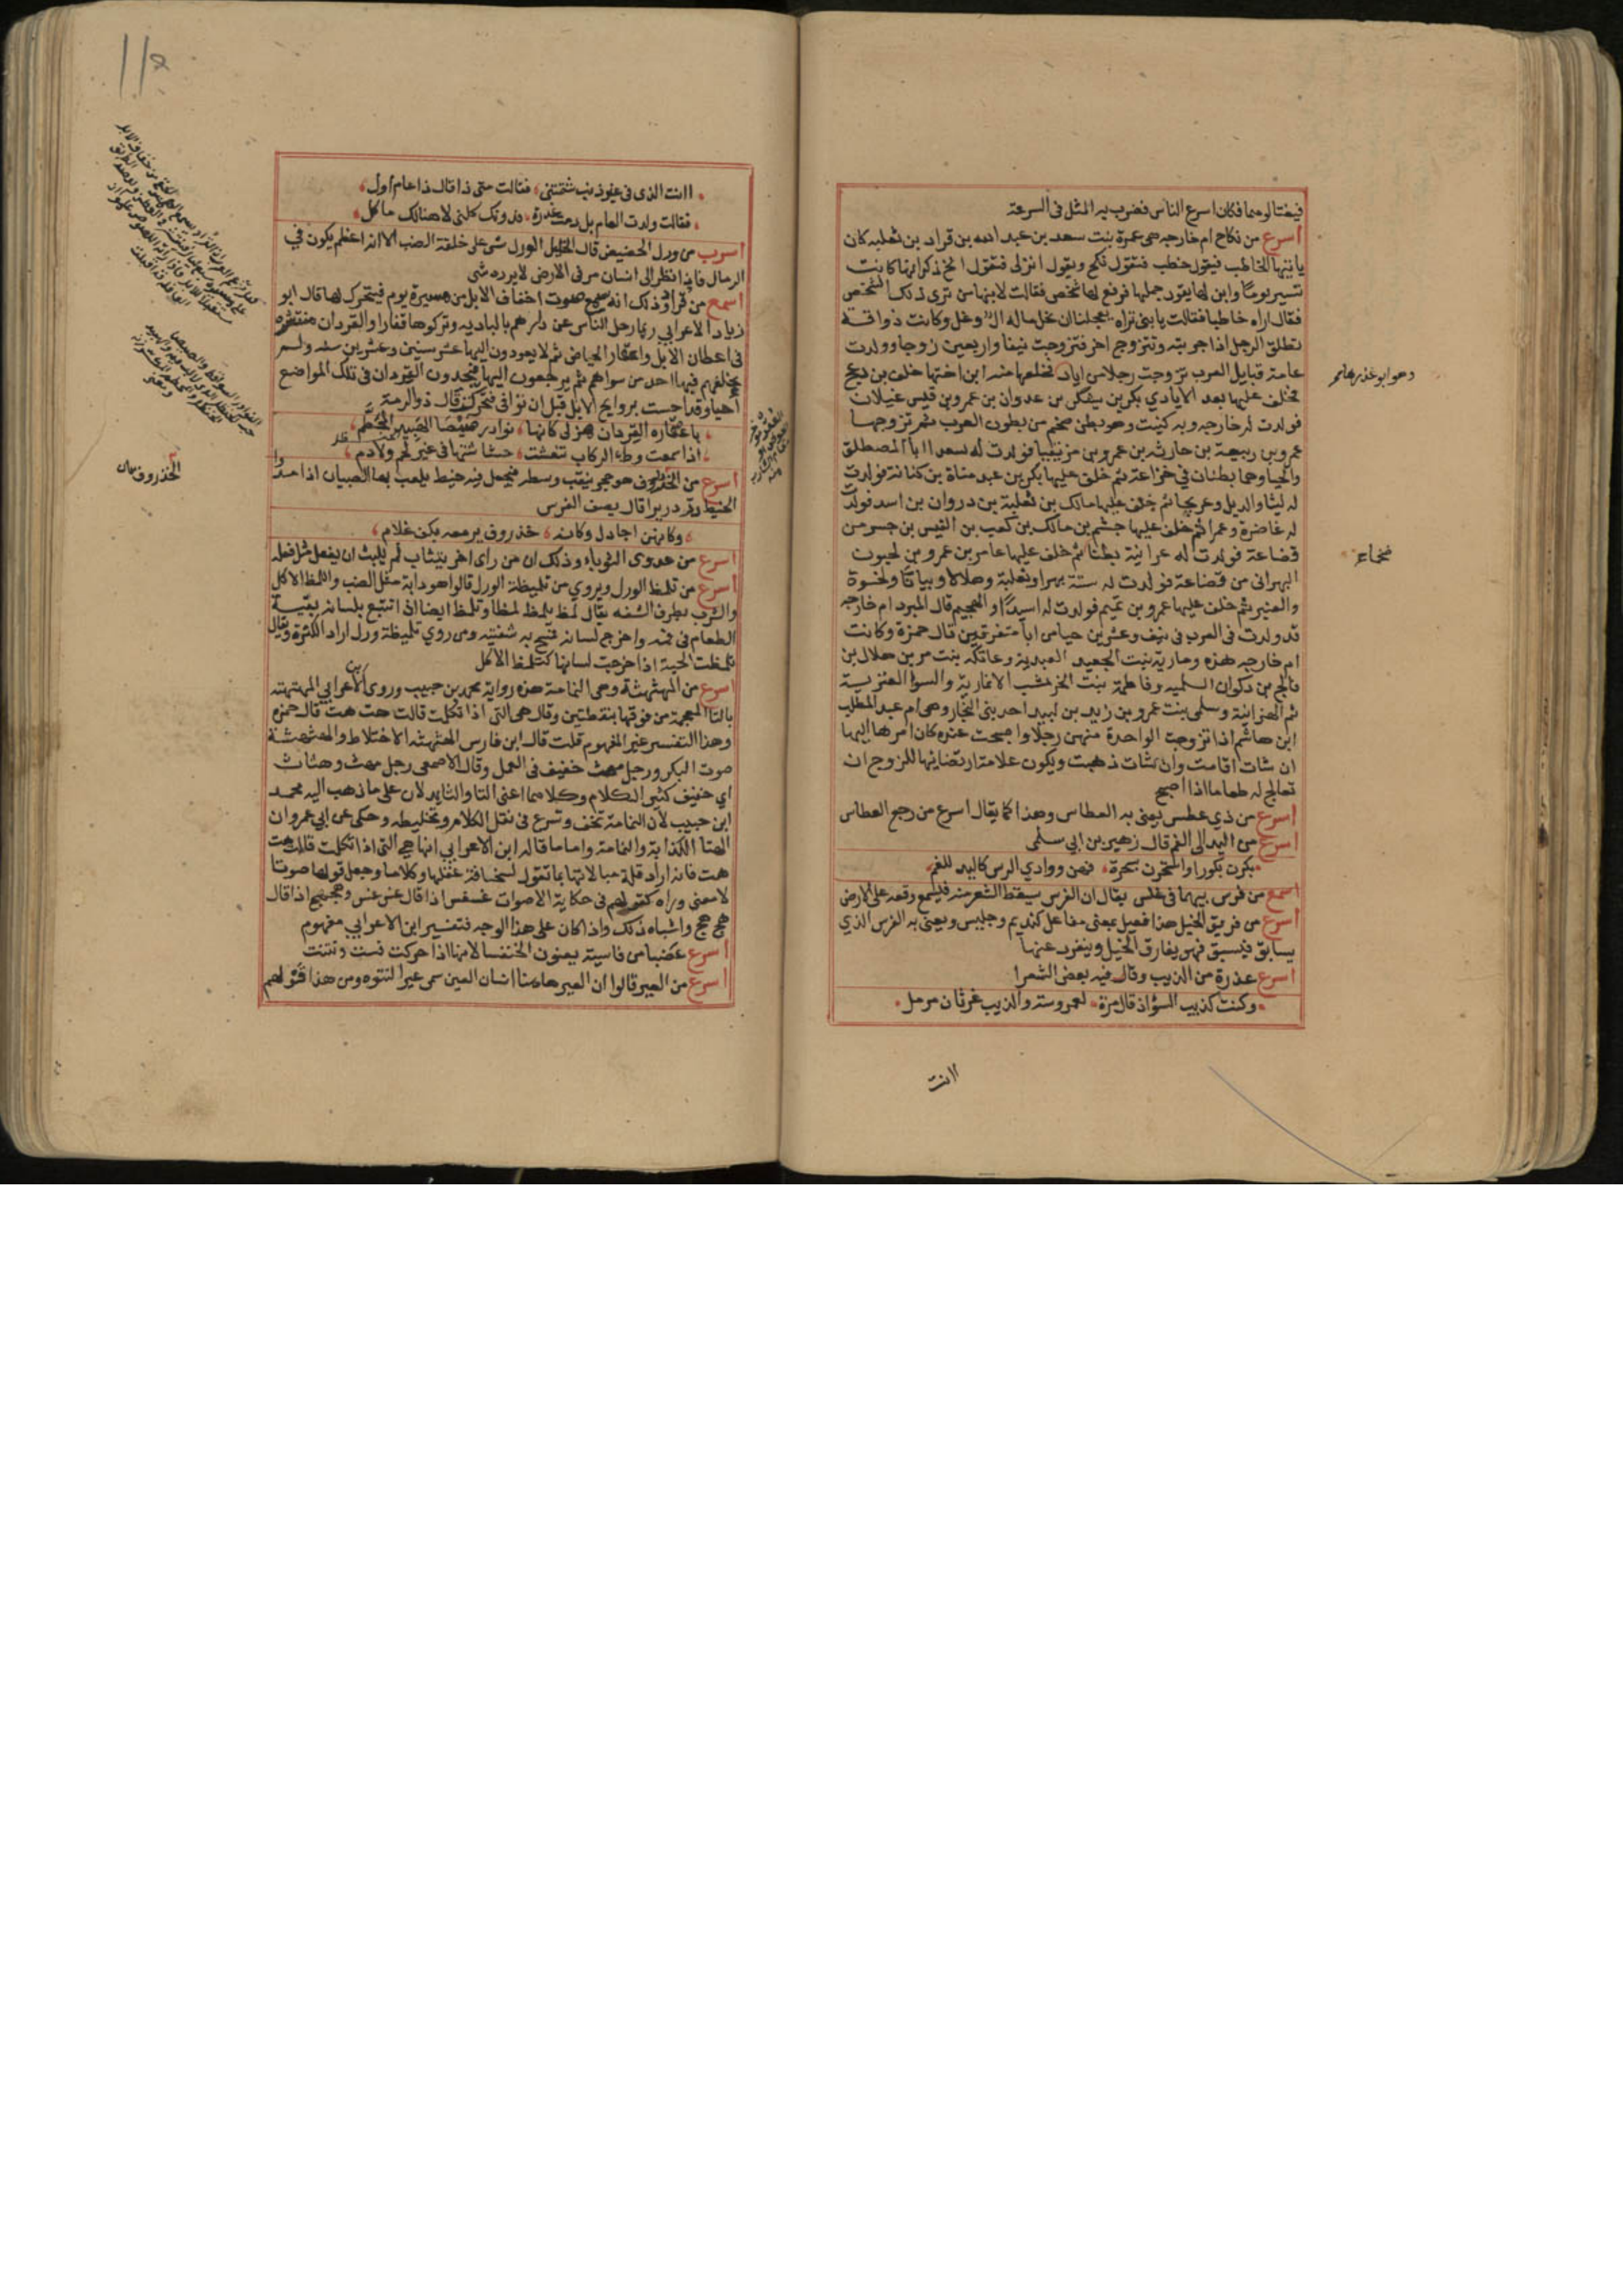 فيغتالوميا فكان اسرع الناس فضرب به المثل في السرعة
اسرع من نكاح ام خارجه هى عمرة بنت سعد بن عبد الله بن قراد بن ثعلبه كان
ياتيها الخاطب فيقول خطب فتقول نكح ويقول انزلى فتقول انخ ذكر انها كانت
تسير يوما وابن لها يقود جملها فرفع لها شخص فقالت لابنها من ترى ذلك الشخص
فقال اراه خاطبا فقالت يا بنى تراه يعجلنا ان نحل ماله ال وغل وكانت ذواقة
تطلق الرجل اذا جربته وتتزوج اخر فتزوجت نيفا واربعين زوجا وولدت
عامة قبايل العرب تزوجت رجلا من اياد فخلعها منه ابن اختها خلف بن دعج
فخلف عليها بعد الايادي بكر بن يشكر بن عدوان بن عمرو بن قيس عيلان
فولدت له خارجه وبه كنيت وهو بطن ضخم من بطون العرب ثم تزوجها
عمرو بن ربيعة بن حارثه بن عمرو بن مزيقيا فولدت له سعدا ابا المصطلق
والحيا وهما بطنان في خزاعة ثم خلف عليها بكر بن عبد مناة بن كنانة فولدت
له ليثا والديل وعريجا ثم خلف عليها مالك بن ثعلبة بن دودان بن اسد فولدت
له غاضرة وعمرا ثم خلف عليها جشم بن مالك بن كعب بن القيس بن جسر من
قضاعة فولدت له عرانية بطنا ثم خلف عليها عامر بن عمرو بن لحيون
البهرانى من قضاعة فولدت له ستة بهرا وثعلبة وهلالا وبيانا ولخوة
والعنبر ثم خلف عليها عمرو بن تميم فولدت له اسيدا والهجيم قال المبرد ام خارجه
قد ولدت فى العرب فى نيف وعشرين حيا من ابا متفرقين قال حمزة وكانت
ام خارجه هذه ومارية بنت الجعيد العبدية وعاتكة بنت مرة بن هلال بن
فالج بن ذكوان السلميه وفاطمة بنت الخرشب الانمارية والسوا العنزية
ثم الهزانية وسلمى بنت عمرو بن زيد بن لبيد احد بنى النجار وهى ام عبد المطلب
ابن هاشم اذا تزوجت الواحدة منهن رجلا واصبحت عنده كان امرها اليها
ان شات اقامت وان شات ذهبت ويكون علامة ارتضايها للزوج ان
تعالج له طعاما اذا اصبح
اسرع من ذي عطس يعنى به العطاس وهذا كما يقال اسرع من رجع العطاس
اسرع من اليد الى الفم قال زهير بن ابي سلمى
بكرن بكورا واستحرن بسحرة فهن ووادي الرس كاليد للفم
اسمع من فرس بيهما فى غلس يقال ان الفرس سيقط الشعر منه فيسمع وقعه على الارض
اسرع من فريق الخيل هذا فعيل بمعنى مفاعل كنديم وجليس ويعنى به الفرس الذي
يسابق فيسبق فهو يفارق الخيل وينفرد عنها
اسرع عذرة من الذيب وقال فيه بعض الشعرا
وكنت كذيب السؤ اذ قال مرة لعمروسة والذيب غرثان مرمل
اانت
وهو ابو عذرها عمر
نخاع
اانت الذى فى غير ذنب شتمتنى فقالت متى ذا قال ذا عام اول
فقالت ولدت العام بل رمت غدرة فدونك كلنى لا هنالك ماكل
اسرب من ورل الحضيض قال الخليل الورل شى على خلقة الضب الا انه اعظم يكون في
الرمال فاذا نظر الى انسان مر فى الارض لا يرده شى
اسمع من قراد وذلك انه يسمع صوت اخفاف الابل من مسيرة يوم فيتحرك لها قال ابو
زياد الاعرابي ربما رحل الناس عن دارهم بالباديه وتركوها قفارا والقردان منتشره
فى اعطان الابل واعقار الحياض ثم لا يعودون اليها عشر سنين وعشرين سنه ولم
يخلفهم فيها احد من سواهم ثم يرجعون اليها فيجدون القردان فى تلك المواضع
احيا وقد احست بروايح الابل قبل ان توافى فتحركت قال ذو الرمة
باعقاره القردان هزلى كانها نوادر صيصا الهبيد المحطم
اذا سمعت وطء الركاب تنغشت حشاشتها فى غير لحم ولا دم
اسرع من الخذروف هو حجر يثقب وسطه فيجعل فيه خيط يلعب بها الصبيان اذا مدوا
الخيط در دريرا قال يصف الفرس
وكانهن اجادل وكانه خذروف يرمعه بكف غلام
اسرع من عدوى الثوباء وذلك ان من راى اخر يتثاب لم يلبث ان يفعل مثل فعله
اسرع من تلمظ الورل ويروي من تلميظة الورل قالوا هو دابة مثل الضب واللمظ الاكل
والشرب بطرف الشفه يقال لمظ يلمظ لمظا وتلمظ ايضا اذا تتبع بلسانه بقية
الطعام فى فمه واخرج لسانه فمسح به شفتيه ومن روي تلميظة ورل اراد الكثرة ويقال
تلمظت الحية اذا اخرجت لسانها كتلمظ الاكل
اسرع من المهثهثة وهى النمامة هذه رواية محمد بن حبيب وروى ابن الاعرابي المهتهتة
بالتا المعجمة من فوقها بنقطتين وقال هى التى اذا تكلمت قالت هت هت قال حمزه
وهذا التفسير غير المفهوم قلت قال ابن فارس الهثهثه الاختلاط والهثهثة
صوت البكر ورجل مهث خفيف فى العمل وقال الاصمعى رجل مهث وهثاث
اي خفيف كثير الكلام وكلاهما اعنى التا والثا يدلان على ما ذهب اليه محمد
ابن حبيب لان النمامة تخف وتسرع فى نقل الكلام وتخليطه وحكى عن ابي عمرو ان
الهتا الكذابة والنمامة واما ما قاله ابن الاعرابي انها هى التى اذا تكلمت قالت هت
هت فانه اراد قلة مبالاتها بما تقول لسخافة عقلها وكلامها وجعل قولها صوتا
لا معنى وراه كقولهم فى حكاية الاصوات غسغس اذا قال غس غس وهجهج اذا قال
هج هج واشباه ذلك واذا كان على هذا الوجه فتفسير ابن الاعرابي مفهوم
اسرع غضبا من فاسية يعنون الخنفسا لانها اذا حركت فست ونتنت
اسرع من العير قالوا ان العير هاهنا انسان العين سمى عيرا لنتوه ومن هذا قولهم
الخذروف